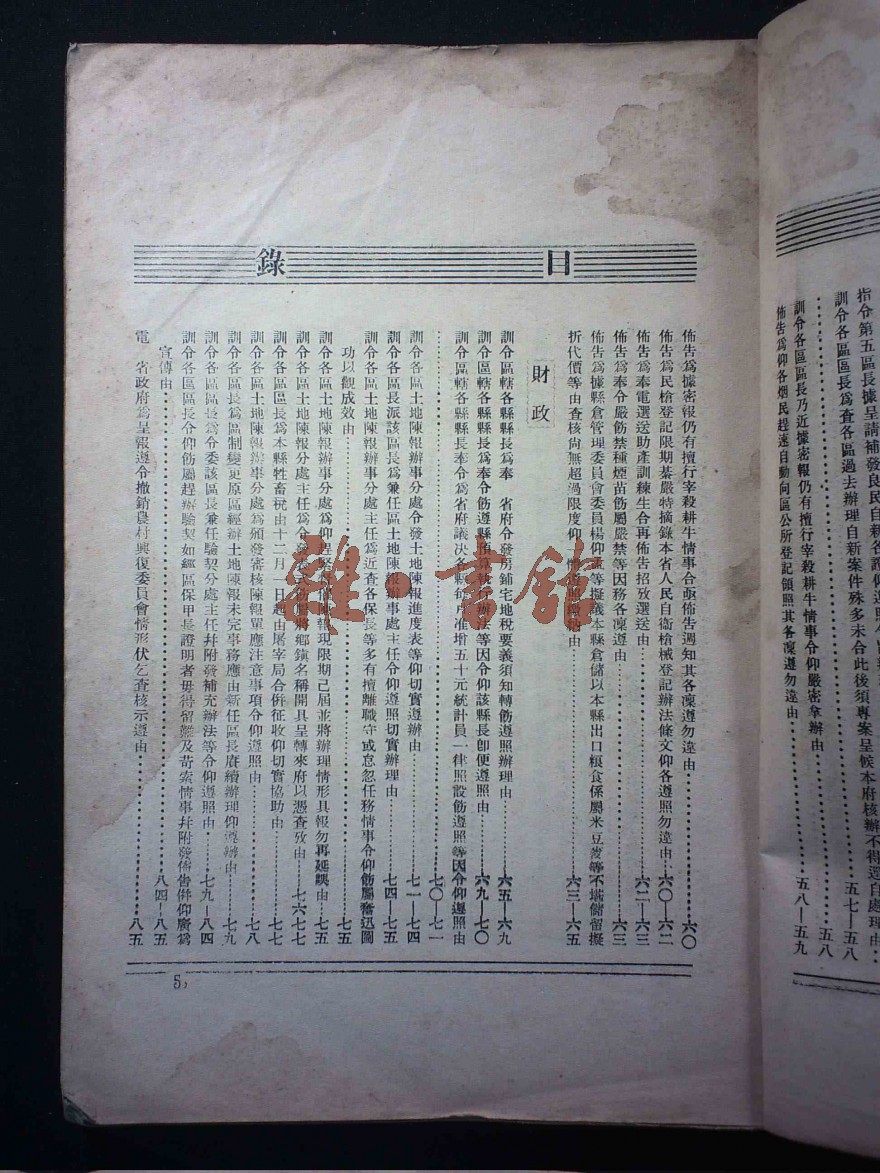 指令第五區長據呈請補發良民自新各證仰遵照
訓令各區區長爲查各區過去辦理自新案件殊多未合此後須專案呈候本府核辦不得逕自處理由
五七—五八
五八
訓令各區區長乃近據密報仍有擅行宰殺耕牛情事令仰嚴密拿辦由
佈告爲仰各烟民趕速自動向區公所登記領照其各凜遵勿違由
五八—五九
目錄
佈告爲據密報仍有擅行宰殺耕牛情事合亟佈告週知其各凜遵勿違由 六〇
佈告爲民槍登記限期綦嚴特摘錄本省人民自衛槍械登記辦法條文仰各遵照勿違由 六〇—六二
佈告爲奉電選送助產訓練生合再佈告招攷選送由 六二—六三
佈告爲奉令嚴飭禁種煙苗飭屬嚴禁等因務各凜遵由 六三
佈告爲據縣倉管理委員會委員楊仰孟等擬議本縣倉儲以本縣出口粮食係屬米豆麥等不堪儲留擬
折代價等由查核尚無超過限度仰一體遵照繳納由 六三—六五
財政
訓令區轄各縣縣長爲奉 省府令發房鋪宅地税要義須知轉飭遵照辦理由 六五—六九
訓令區轄各縣縣長爲奉令飭遵縣預算執行辦法等因令仰該縣長卽便遵照由 六九—七〇
訓令區轄各縣縣長奉令爲省府議决各縣每月准增五十元統計員一律照設飭遵照等因令仰遵照由
七〇—七一
訓令各區土地陳報辦事分處令發土地陳報進度表等仰切實遵辦由 七一—七四
訓令各區長派該區長爲兼任區土地陳報辦事處主任令仰遵照切實辦理由 七四—七五
訓令各區土地陳報辦事分處主任爲近查各保長等多有擅離職守或怠忽任務情事令仰飭屬奮迅圖
功以觀成效由 七五
訓令各區土地陳報辦事分處爲仰趕緊督催陳報現限期已屆並將辦理情形具報勿再延誤由 七五
訓令各區土地陳報分處主任爲令發表式飭屬將鄉鎮名稱開具呈轉來府以憑查攷由 七六—七七
訓令各區區長爲本縣牲畜税由十二月一日起由屠宰局合倂征收仰切實協助由 七七
訓令各區土地陳報辦事分處爲頒發審核陳報單應注意事項令仰遵照由 七八
訓令各區長爲區制變更原區經辦土地陳報未完事務應由新任區長賡續辦理仰遵辦由 七九
訓令各區區長爲令委該區長兼任驗契分處主任幷附發補充辦法等令仰遵照由 七九—八四
訓令各區區長令仰飭屬趕辦驗契如經區保甲長證明者毋得留難及苛索情事幷附發佈告倂仰廣爲
宣傳由 八四—八五
電 省政府爲呈報遵令撤銷農村興復委員會情形伏乞查核示遵由 八五
5,
雜書館